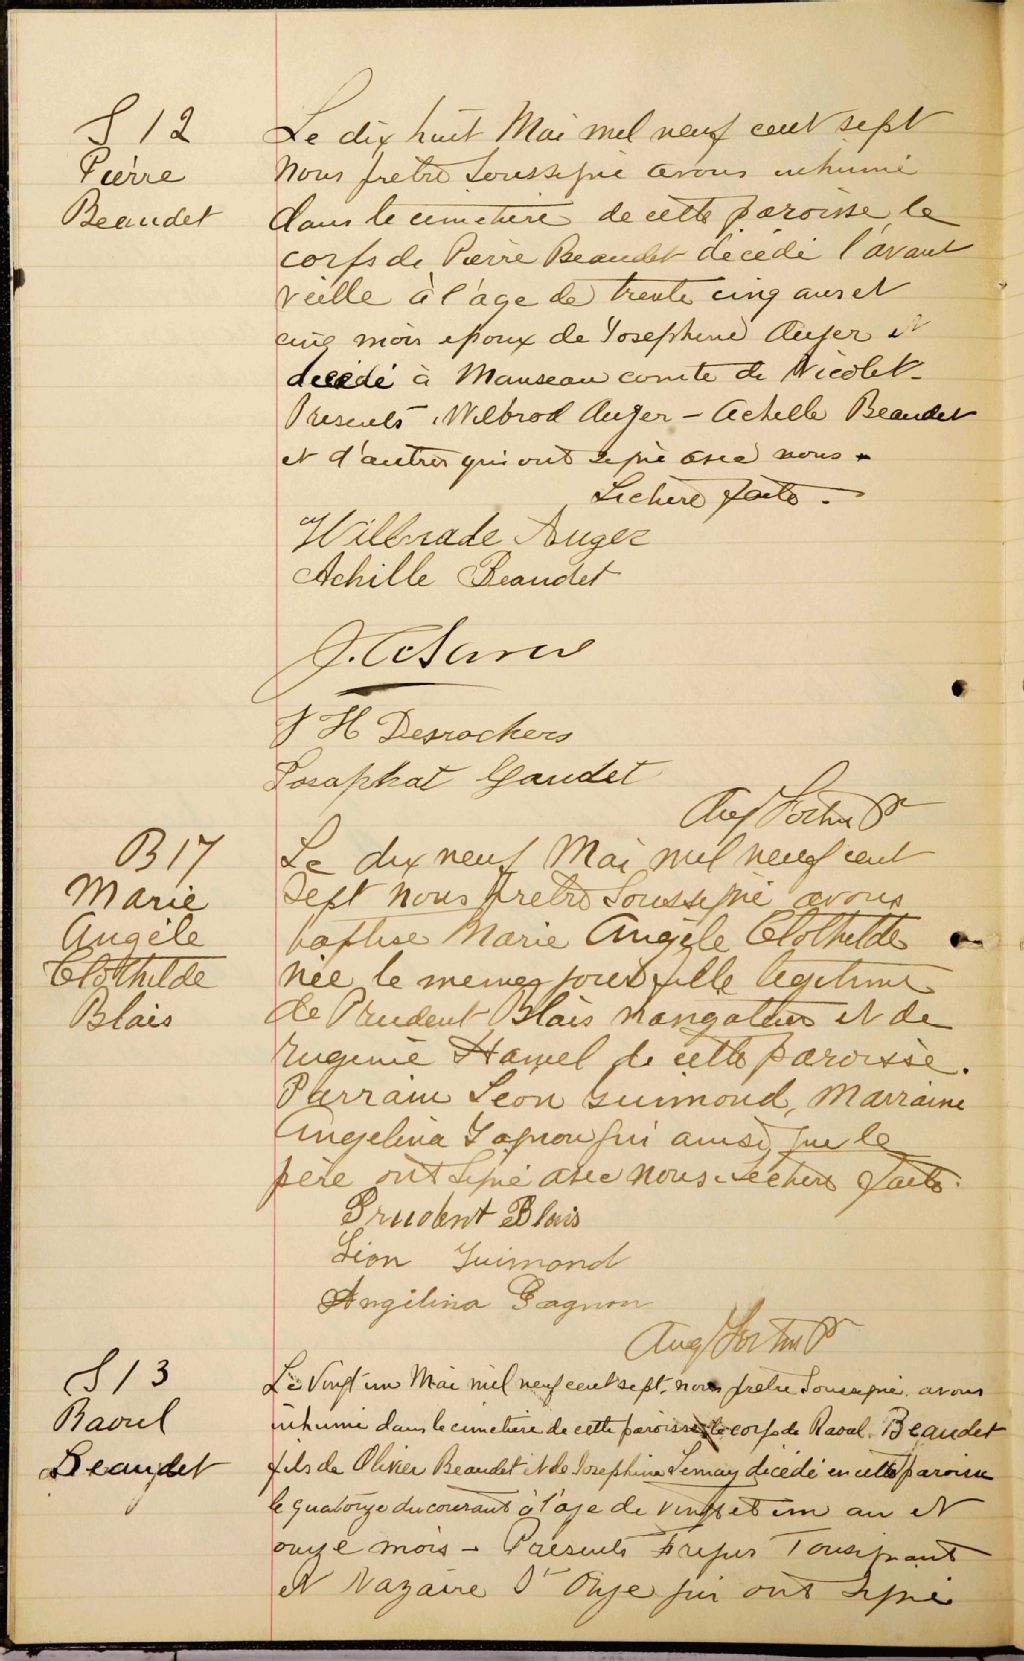 S 12
Pierre
Beaudet
Le dix huit Mai mil neuf cent sept
nous prêtre soussigné avons inhumé
dans le cimetière de cette paroisse le
corps de Pierre Beaudet décédé l'avant
veille à l'age de trente cinq ans et
cinq mois epoux de Josephine Auger et
décédé à Manseau comté de Nicolet -
Présents Wilbrod Auger - Achille Beaudet
et d'autres qui ont signé avec nous -
Lecture faite -
Wilbrade Auger
Achille Beaudet
J H Desrochers
Josaphat Gaudet
Aug Fortin Ptr
B 17
Marie
Angèle
Clothilde
Blais
Le dix neuf Mai mil neuf cent
sept nous prêtre soussigné avons
baptisé Marie Angèle Clothilde
née le meme jour fille légitime
de Prudent Blais navigateur et de
Eugenie Hamel de cette paroisse.
Parrain Léon Guimond, Marraine
Angelina Gagnon qui ainsi que le
père ont signé avec nous. Lecture faite.
Prudent Blais
Léon Guimond
Angélina Gagnon
Aug Fortin Ptr
S 13
Raoul
Beaudet
Le vingt un Mai mil neuf cent sept, nous prêtre soussigné, avons
inhumé dans le cimetière de cette paroisse le corps de Raoul Beaudet
fils de Olivier Beaudet et de Josephine Lemay décédé en cette paroisse
le quatorze du courant à l'age de vingt et un an et
onze mois - Présents Tousignant
et Nazaire St Onge qui ont signé